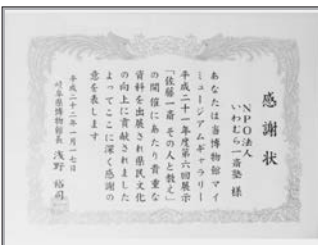 感謝状
NPO法人
いわむら一斎塾 様
あなたは当博物館マイ
ミュージアムギャラリー
平成二十一年度第六回展示
「佐藤一斎 その人と教え」
の開催にあたり貴重な
資料を出展され県民文化
の向上に貢献されました
よってここに深く感謝の
意を表します
平成二十二年一月十七日
岐阜県博物館長 浅野裕司